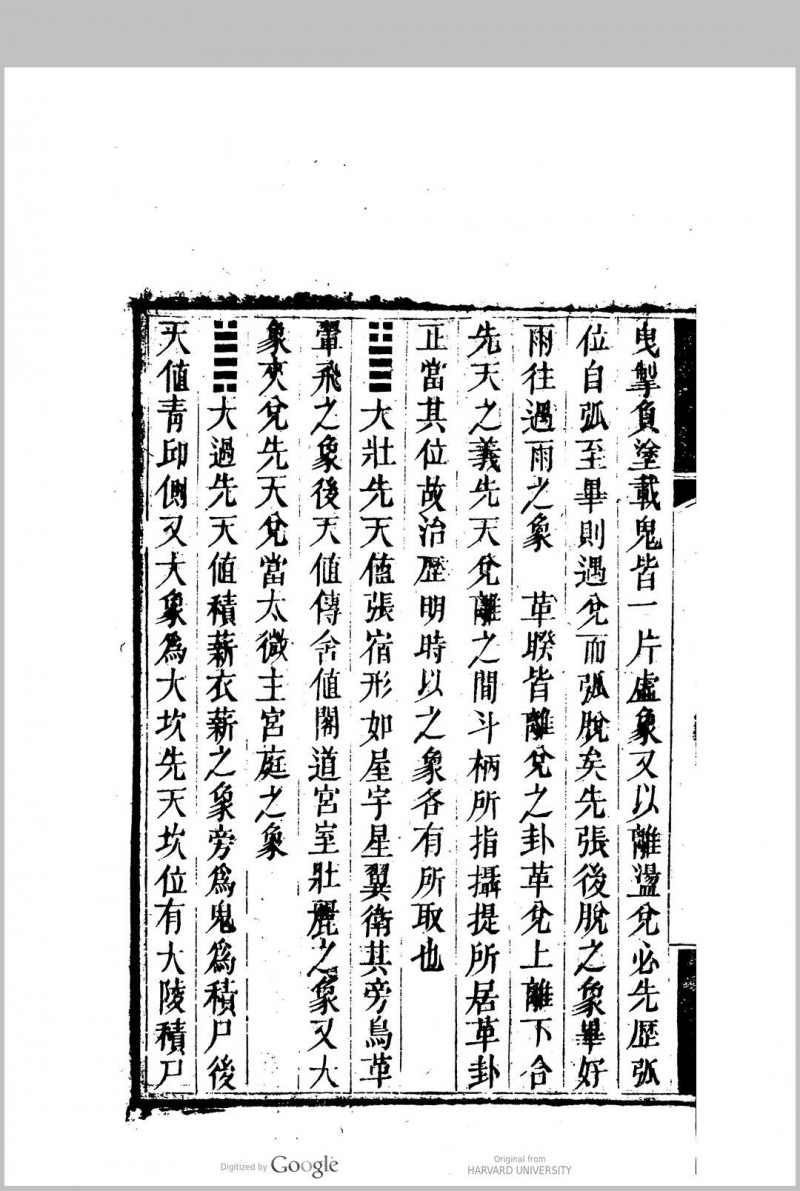 曳掣負塗載鬼皆一片虛象又以離盪兌必先歷弧
位自弧至畢則遇兌而弧脫矣先張後脫之象畢好
雨往遇雨之象　革睽皆離兌之卦革兌上離下合
先天之義先天兌離之間斗柄所指攝提所居革卦
正當其位故治歷明時以之象各有所取也
䷡大壯先天値張宿形如屋宇星翼衛其旁鳥革
翬飛之象後天値傳舍値閣道宮室壯麗之象又大
象夾兌先天兌當太微主宮庭之象
䷛大過先天値積薪衣薪之象旁爲鬼爲積尸後
天値靑邱側又大象爲大坎先天坎位有大陵積尸
Digitized by Google
Original from
HARVARD UNIVERSITY